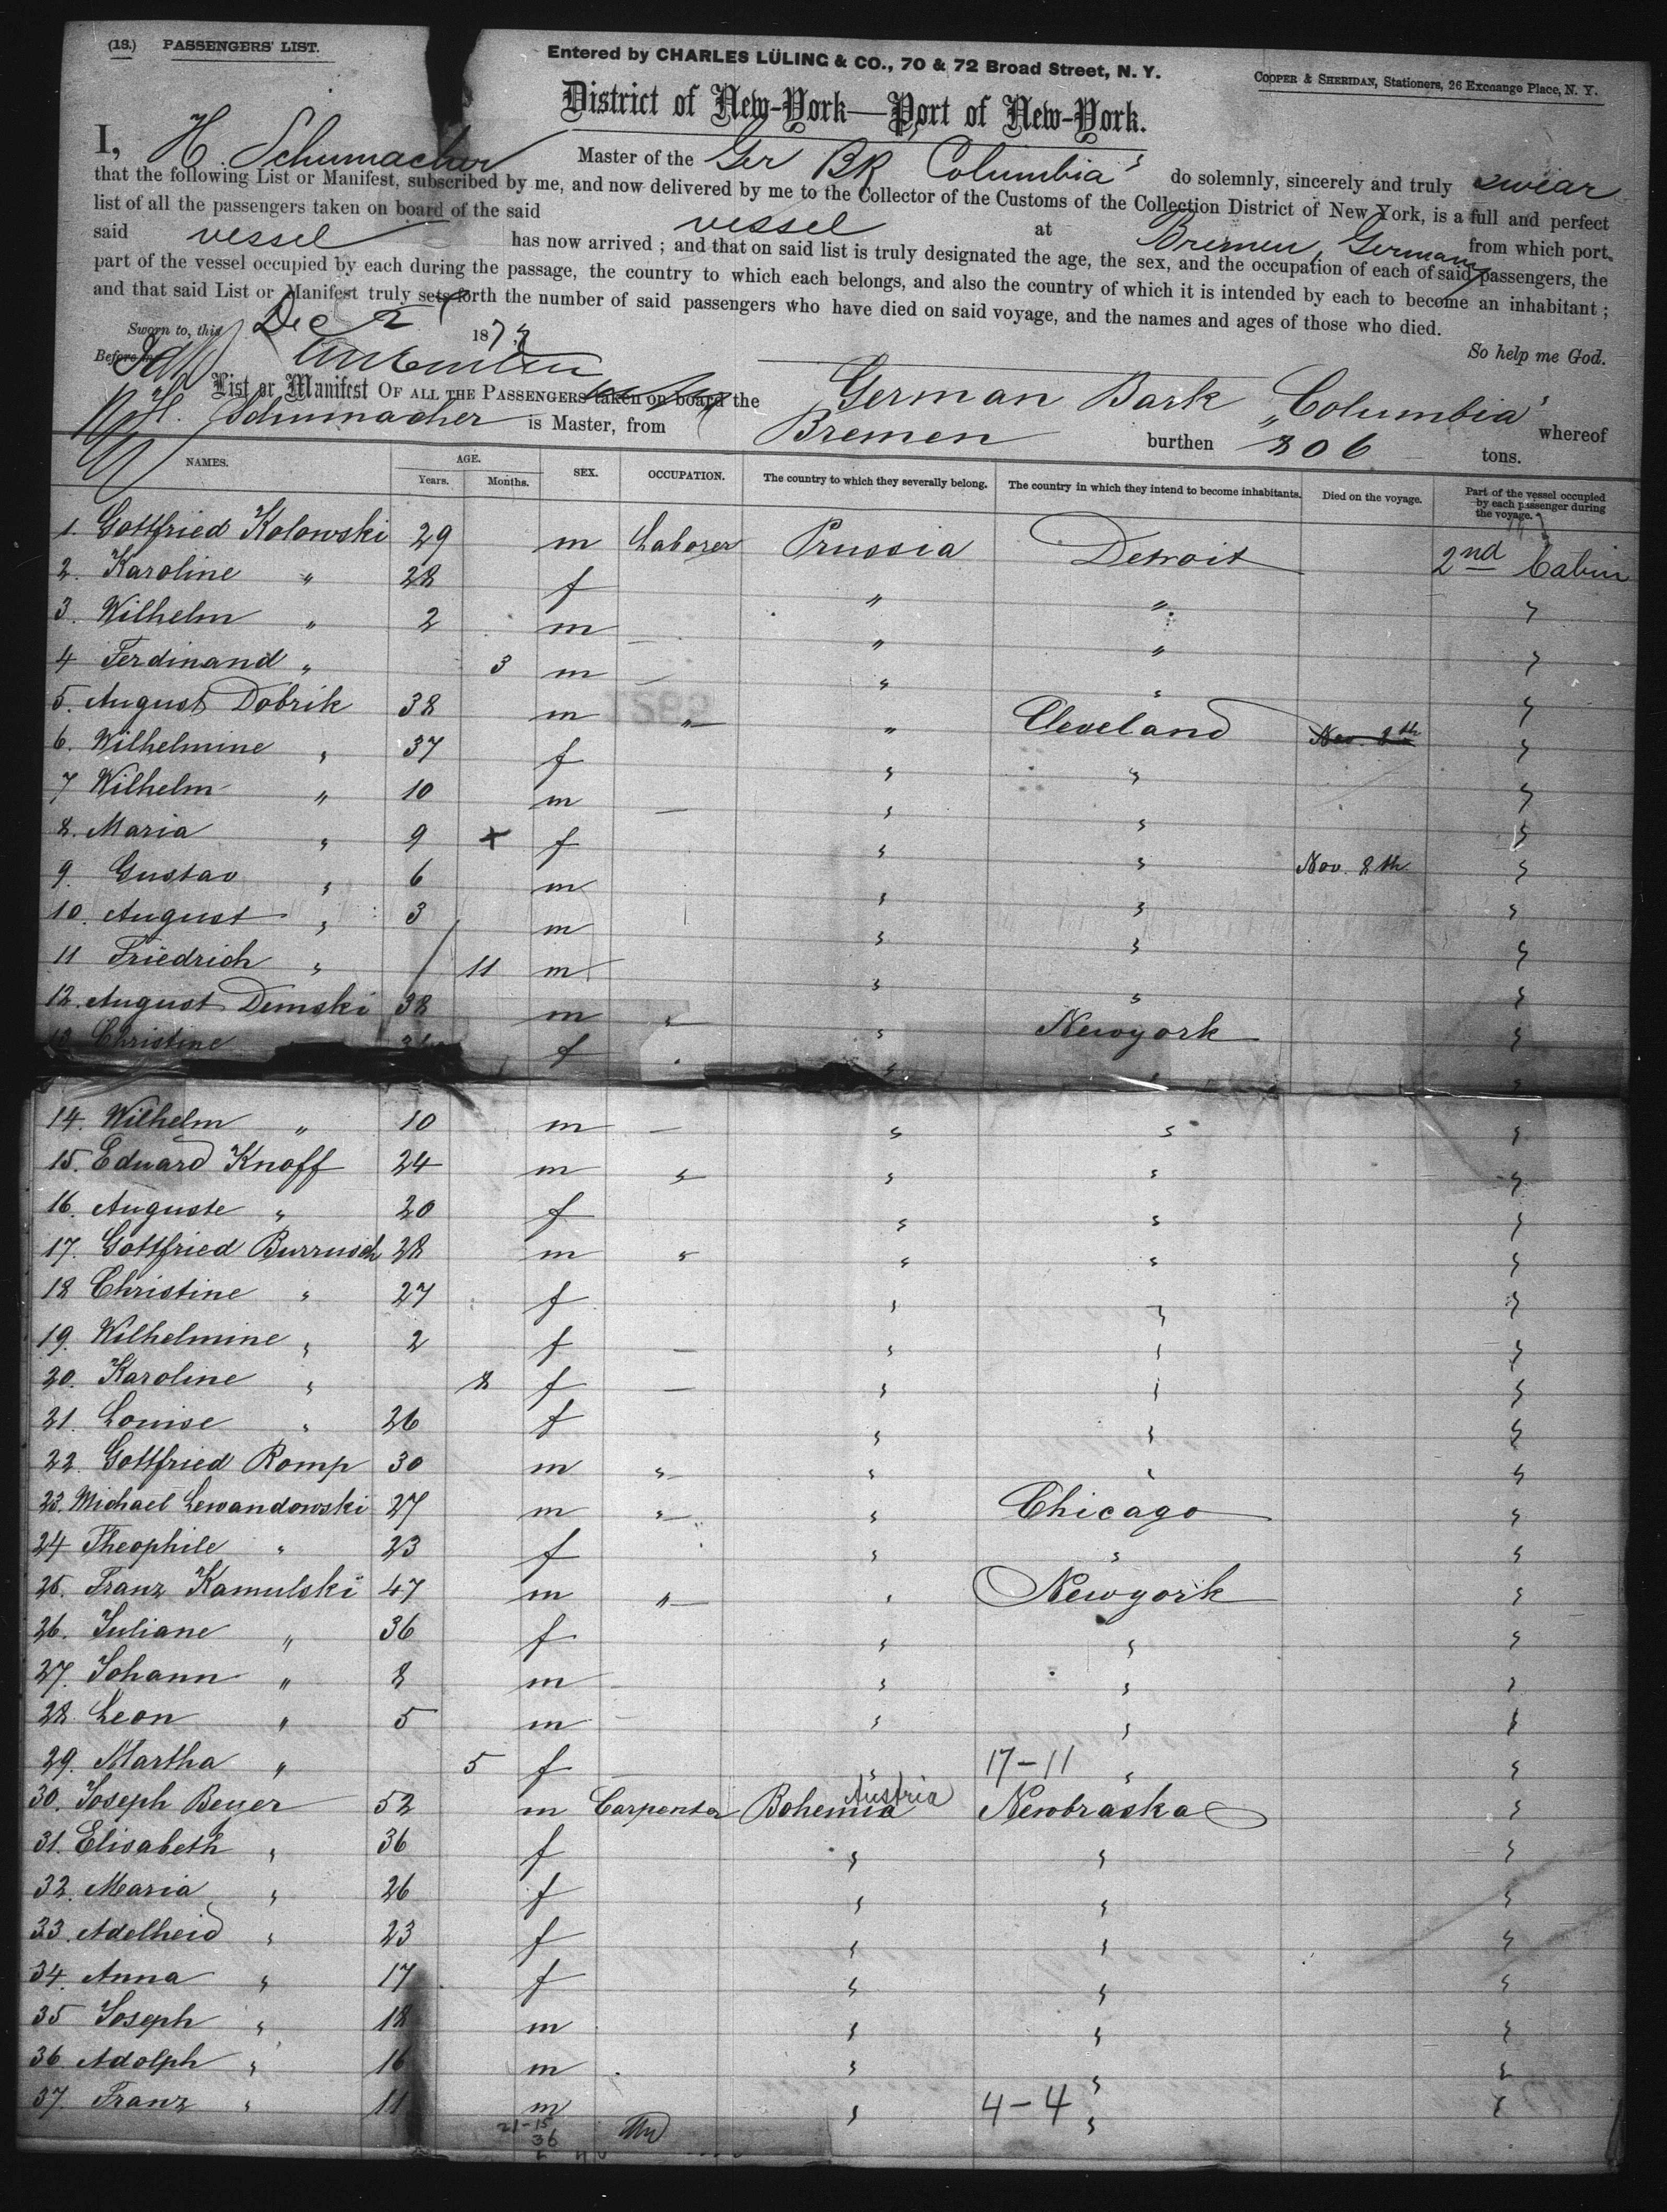 (18.) PASSENGERS' LIST.
Entered by CHARLES LÜLING & CO., 70 & 72 Broad Street, N. Y.
COOPER & SHERIDAN, Stationers, 26 Exchange Place, N. Y.
District of New-York—Port of New-York.
I, H. Schumacher Master of the Ger BK Columbia do solemnly, sincerely and truly swear
that the following List or Manifest, subscribed by me, and now delivered by me to the Collector of the Customs of the Collection District of New York, is a full and perfect
list of all the passengers taken on board of the said vessel at Bremen, Germany from which port
said vessel has now arrived ; and that on said list is truly designated the age, the sex, and the occupation of each of said passengers, the
part of the vessel occupied by each during the passage, the country to which each belongs, and also the country of which it is intended by each to become an inhabitant ;
and that said List or Manifest truly sets forth the number of said passengers who have died on said voyage, and the names and ages of those who died.
Sworn to, this Dec 2 187
So help me God.
Before me
List or Manifest OF ALL THE PASSENGERS taken on board the German Bark "Columbia" whereof
H. Schumacher is Master, from Bremen burthen 806 tons.
NAMES. AGE. Years. Months. SEX. OCCUPATION. The country to which they severally belong. The country in which they intend to become inhabitants. Died on the voyage. Part of the vessel occupied by each passenger during the voyage.
1. Gottfried Kolowski 29 m Laborer Prussia Detroit 2nd Cabin
2. Karoline " 28 f " " "
3. Wilhelm " 2 m — " " "
4 Ferdinand " 3 m — " " "
5. August Dobrik 38 m " " Cleveland Nov. 8th "
6. Wilhelmine " 37 f " " "
7 Wilhelm " 10 m — " " "
8. Maria " 9 + f " " Nov. 8th "
9. Gustav " 6 m " " "
10. August " 3 m " " "
11 Friedrich " 11 m " " "
12. August Demski 38 m " " Newyork "
13 Christine f " " " "
14. Wilhelm " 10 m — " " "
15. Eduard Knoff 24 m " " " "
16. Auguste " 20 f " " "
17. Gottfried Burrusch 28 m " " " "
18 Christine " 27 f " " "
19. Wilhelmine " 2 f — " " "
20. Karoline " 8 f — " " "
21. Louise " 26 f " " "
22. Gottfried Romp 30 m " " " "
23. Michael Lewandowski 27 m " " Chicago "
24 Theophile " 23 f " " "
25. Franz Kamulski 47 m " " Newyork "
26. Juliane " 36 f " " "
27. Johann " 8 m — " " "
28 Leon " 5 m — " " "
29. Martha " 5 f " 17-11 " "
30. Joseph Beyer 52 m Carpenter Bohemia Austria Newbraska "
31. Elisabeth " 36 f " " "
32. Maria " 26 f " " "
33. Adelheid " 23 f " " "
34. Anna " 17 f " " "
35 Joseph " 18 m " " "
36 Adolph " 16 m " " "
37. Franz " 11 m " 4-4 " "
21-15
36